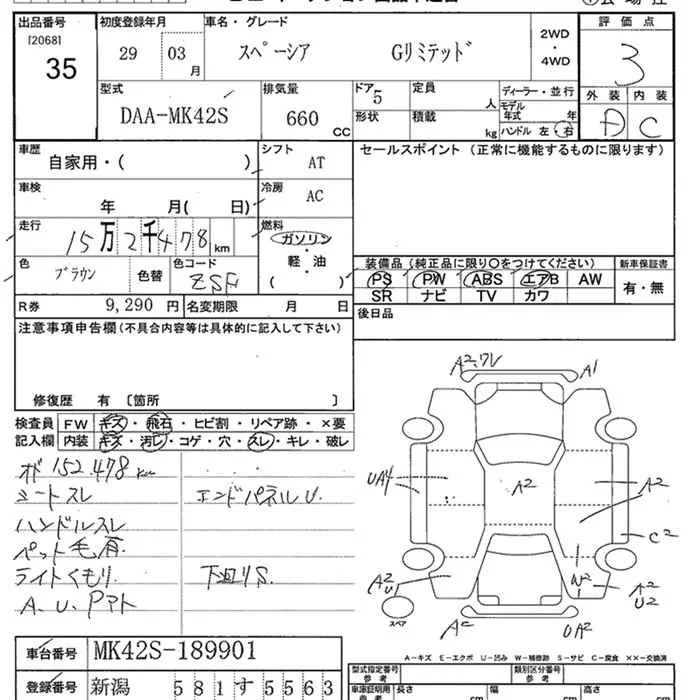 出品番号 初度登録年月 車名・グレード 2WD ・ 4WD 評価点
[2068]
35
29 03 月 スペーシア Gリミテッド 3
型式 排気量 ドア 定員 ディーラー・並行 外装 内装
DAA-MK42S 660 CC 5 人 モデル年式 年
形状 積載 kg ハンドル 左・右 D C
車歴 自家用・( ) シフト AT セールスポイント(正常に機能するものに限ります)
車検 年 月( 日) 冷房 AC
走行 15万2千478 km 燃料 ガソリン ・ 軽・油 ( )
色 ブラウン 色替 色コード ZSF
装備品(純正品に限り〇をつけてください) 新車保証書
PS PW ABS エアB AW 有・無
SR ナビ TV カワ
R券 9,290 円 名変期限 月 日 後日品
注意事項申告欄(不具合内容等は具体的に記入して下さい)
修復歴 有 〔箇所 〕
検査員 FW キズ・飛石・ヒビ割・リペア跡・×要
記入欄 内装 キズ・汚レ・コゲ・穴・スレ・キレ・破レ
オド 152.478km
シートスレ エンドパネルU.
ハンドルスレ
ペット毛有.
ライトくもり. 下廻りS.
A.U.Pアト
A2.ワレ A1
UA4 A2 A2
C2
A2 U W2 A2 U2
スペア
A2 UA2
A-キズ E-エクボ U-凹み W-補修跡 S-サビ C-腐食 ××-交換済
車台番号 MK42S-189901
型式指定番号 参考 類別区分番号 参考
登録番号 新潟 581す5563
車庫証明用 参考 長さ cm 幅 cm 高さ cm